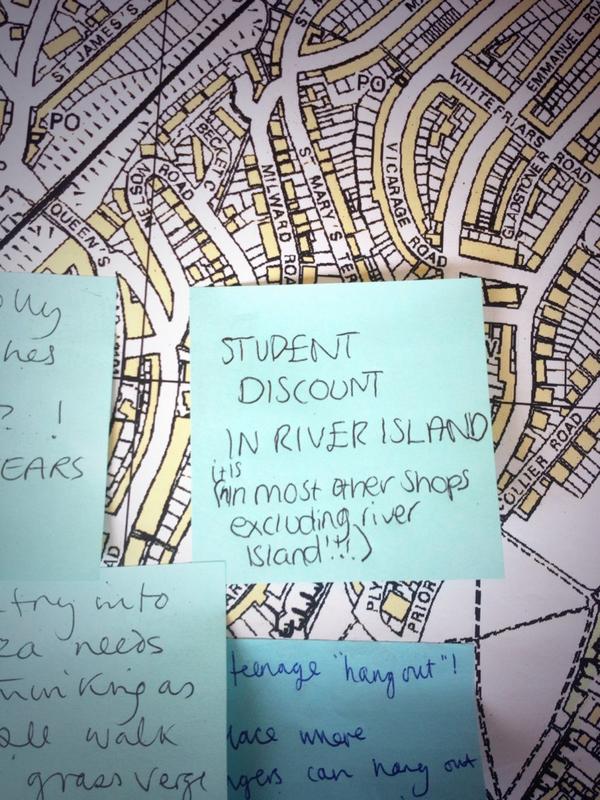 ST JAMES'S
PO
ST M
PO
WHITEFRIARS ROAD
EMMANUEL RO
GLADSTONE R
BECLET C
ROAD
QUEEN'S
MILWARD ROA
ST MARY'S TER
VICARAGE ROAD
COLLIER ROAD
PLY
PRIOR
STUDENT
DISCOUNT
IN RIVER ISLAND
it is
in most other shops
excluding river
Island!!!)
hes
? !
EARS
try into
za needs
thinking as
walk
grass verge
teenage "hang out"!
lace where
gers can hang out